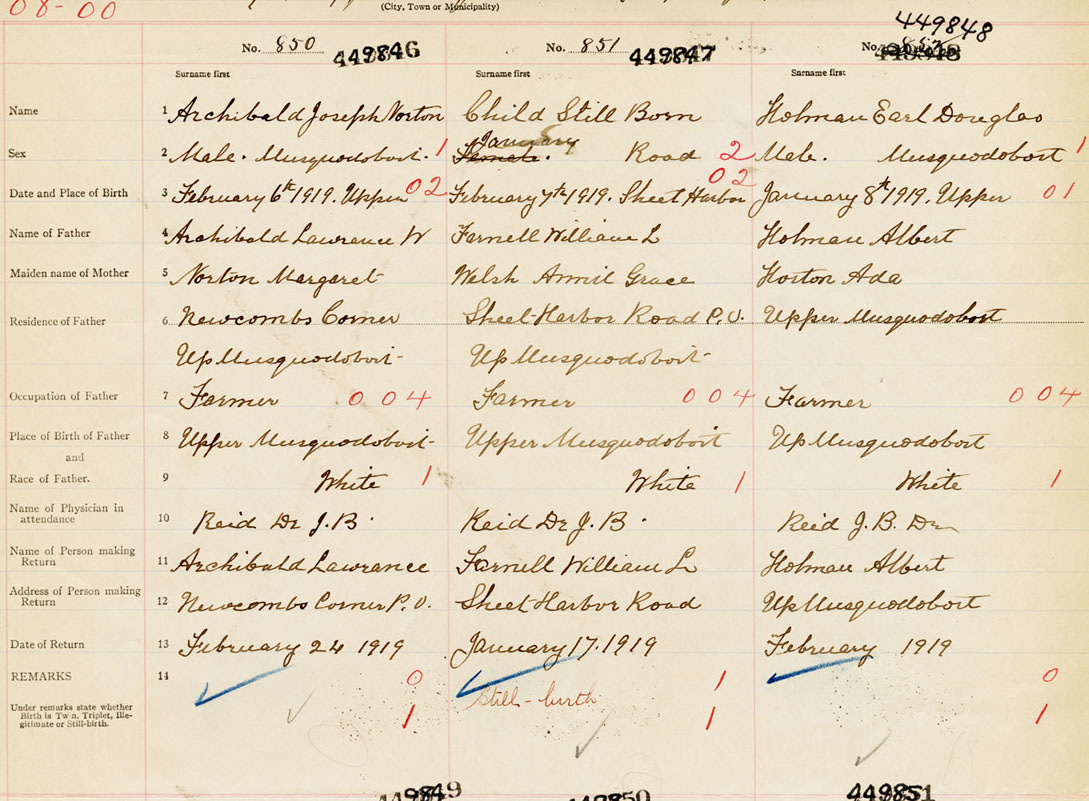 08-00
(City, Town or Municipality)
No. 850 449846 No. 851 449847 No. 449848
Surname first Surname first Surname first
Name 1 Archibald Joseph Norton Child Still Born Holman Earl Douglas
January
Sex 2 Male. Musquodoboit. 1 Female. Road 2 Male. Musquodoboit 1
Date and Place of Birth 3 February 6th 1919. Upper 02 February 7th 1919. Sheet Harbor 02 January 8th 1919. Upper 01
Name of Father 4 Archibald Lawrence W Farnell William L Holman Albert
Maiden name of Mother 5 Norton Margaret Welsh Annil Grace Horton Ada
Residence of Father 6 Newcombs Corner Sheet Harbor Road P.O. Upper Musquodoboit
Up Musquodoboit Up Musquodoboit
Occupation of Father 7 Farmer 004 Farmer 004 Farmer 004
Place of Birth of Father 8 Upper Musquodoboit Upper Musquodoboit Up Musquodoboit
and
Race of Father. 9 White 1 White 1 White 1
Name of Physician in
attendance 10 Reid Dr J.B. Reid Dr J.B. Reid J.B. Dr
Name of Person making
Return 11 Archibald Lawrance Farnell William L Holman Albert
Address of Person making
Return 12 Newcombs Corner P.O. Sheet Harbor Road Up Musquodoboit
Date of Return 13 February 24 1919 January 17. 1919 February 1919
REMARKS 14 0 1 0
Still-birth
Under remarks state whether
Birth is Twin, Triplet, Ille-
gitimate or Still-birth. 1 1 1
449849 449850 449851